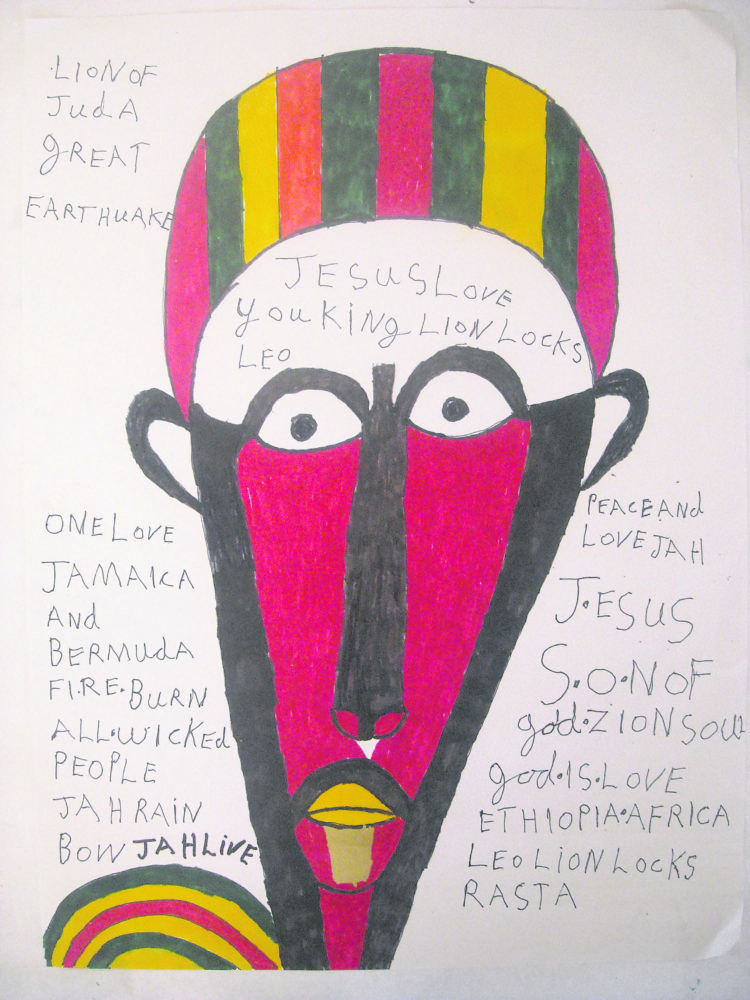 LION OF
JudA
gREAT
EARTHUAKE
JESUS LOVE
YOU KINg LION LOCKS
LEO
ONE LOVE
JAMAICA
ANd
BERMUdA
FI.RE.BURN
ALL.WICKEd
PEOPLE
JAH RAIN
BOW JAH LIVE
PEACE ANd
LOVE JAH
J.ESUS
S.O.N OF
god.ZION SOUL
god.IS.LOVE
ETHIOPIA.AFRICA
LEO LION LOCKS
RASTA